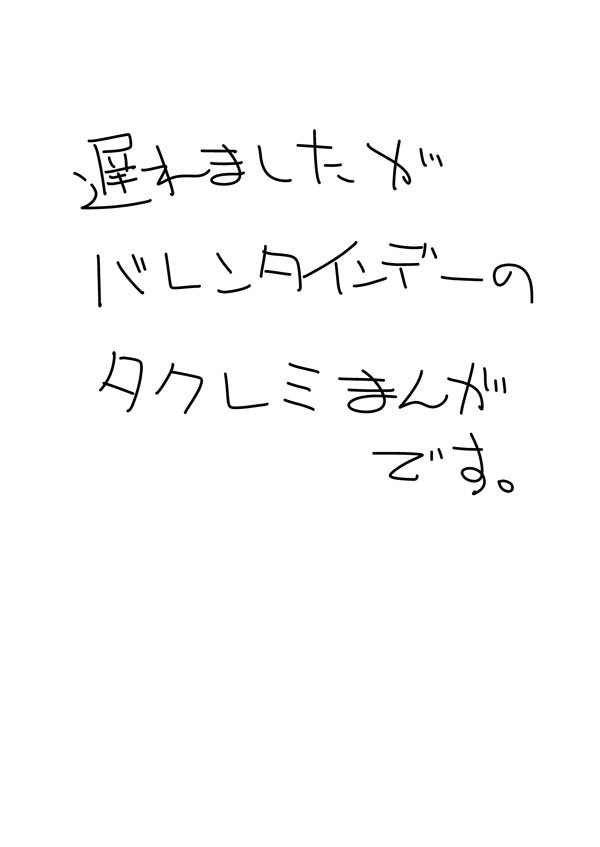 遅れましたが
バレンタインデーの
タクレミまんが
です。